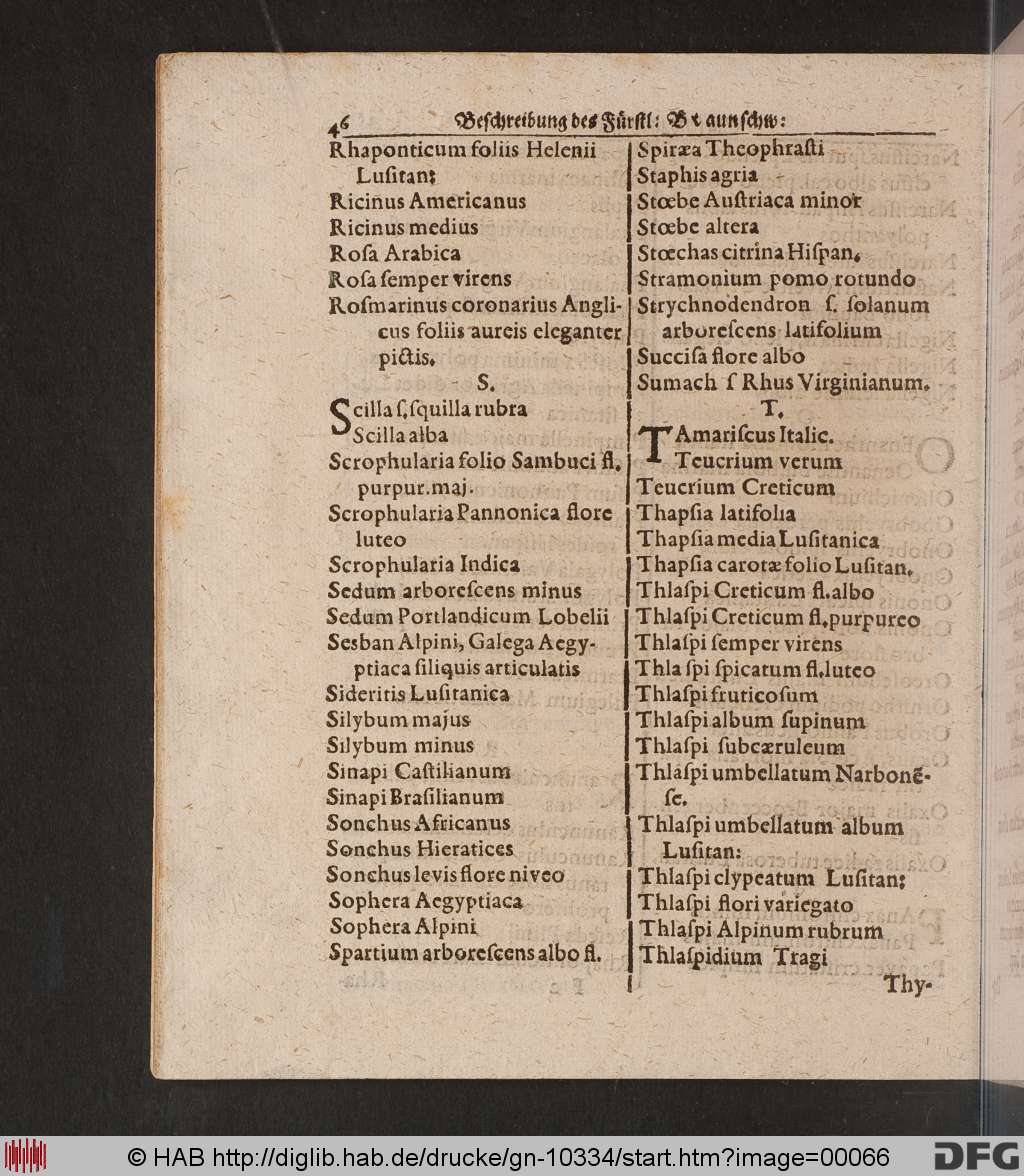 46
Beschreibung des Fürstl: Braunschw:
Rhaponticum foliis Helenii
Luſitan:
Ricinus Americanus
Ricinus medius
Roſa Arabica
Roſa ſemper virens
Roſmarinus coronarius Angli-
cus foliis aureis eleganter
pictis.
S.
Scilla ſ. ſquilla rubra
Scilla alba
Scrophularia folio Sambuci fl.
purpur. maj.
Scrophularia Pannonica flore
luteo
Scrophularia Indica
Sedum arboreſcens minus
Sedum Portlandicum Lobelii
Sesban Alpini, Galega Aegy-
ptiaca ſiliquis articulatis
Sideritis Luſitanica
Silybum majus
Silybum minus
Sinapi Caſtilianum
Sinapi Braſilianum
Sonchus Africanus
Sonchus Hieratices
Sonchus levis flore niveo
Sophera Aegyptiaca
Sophera Alpini
Spartium arboreſcens albo fl.
Spiræa Theophraſti
Staphis agria
Stœbe Auſtriaca minor
Stœbe altera
Stœchas citrina Hiſpan.
Stramonium pomo rotundo
Strychnodendron ſ. ſolanum
arboreſcens latifolium
Succiſa flore albo
Sumach ſ Rhus Virginianum.
T.
TAmariſcus Italic.
Teucrium verum
Teucrium Creticum
Thapſia latifolia
Thapſia media Luſitanica
Thapſia carotæ folio Luſitan.
Thlaſpi Creticum fl. albo
Thlaſpi Creticum fl. purpureo
Thlaſpi ſemper virens
Thlaſpi ſpicatum fl. luteo
Thlaſpi fruticoſum
Thlaſpi album ſupinum
Thlaſpi ſubcæruleum
Thlaſpi umbellatum Narbonẽ-
ſe.
Thlaſpi umbellatum album
Luſitan:
Thlaſpi clypeatum Luſitan:
Thlaſpi flori variegato
Thlaſpi Alpinum rubrum
Thlaſpidium Tragi
Thy-
© HAB http://diglib.hab.de/drucke/gn-10334/start.htm?image=00066
DFG